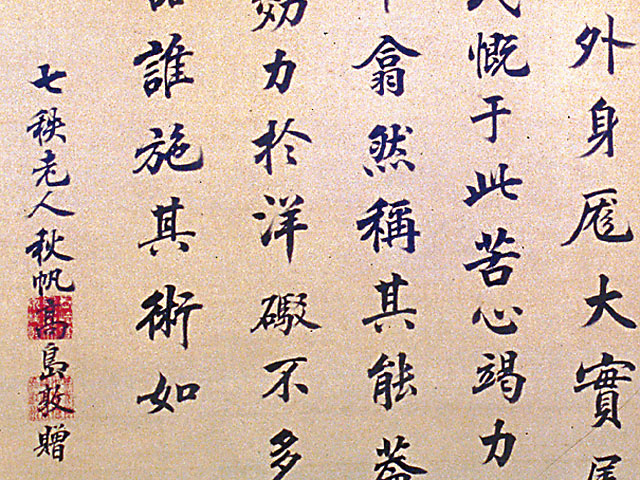 外身厖大實
慨于此苦心竭力
翕然稱其能蓋
効力於洋礮不多
誰施其術如
七秩老人秋帆高島敦贈